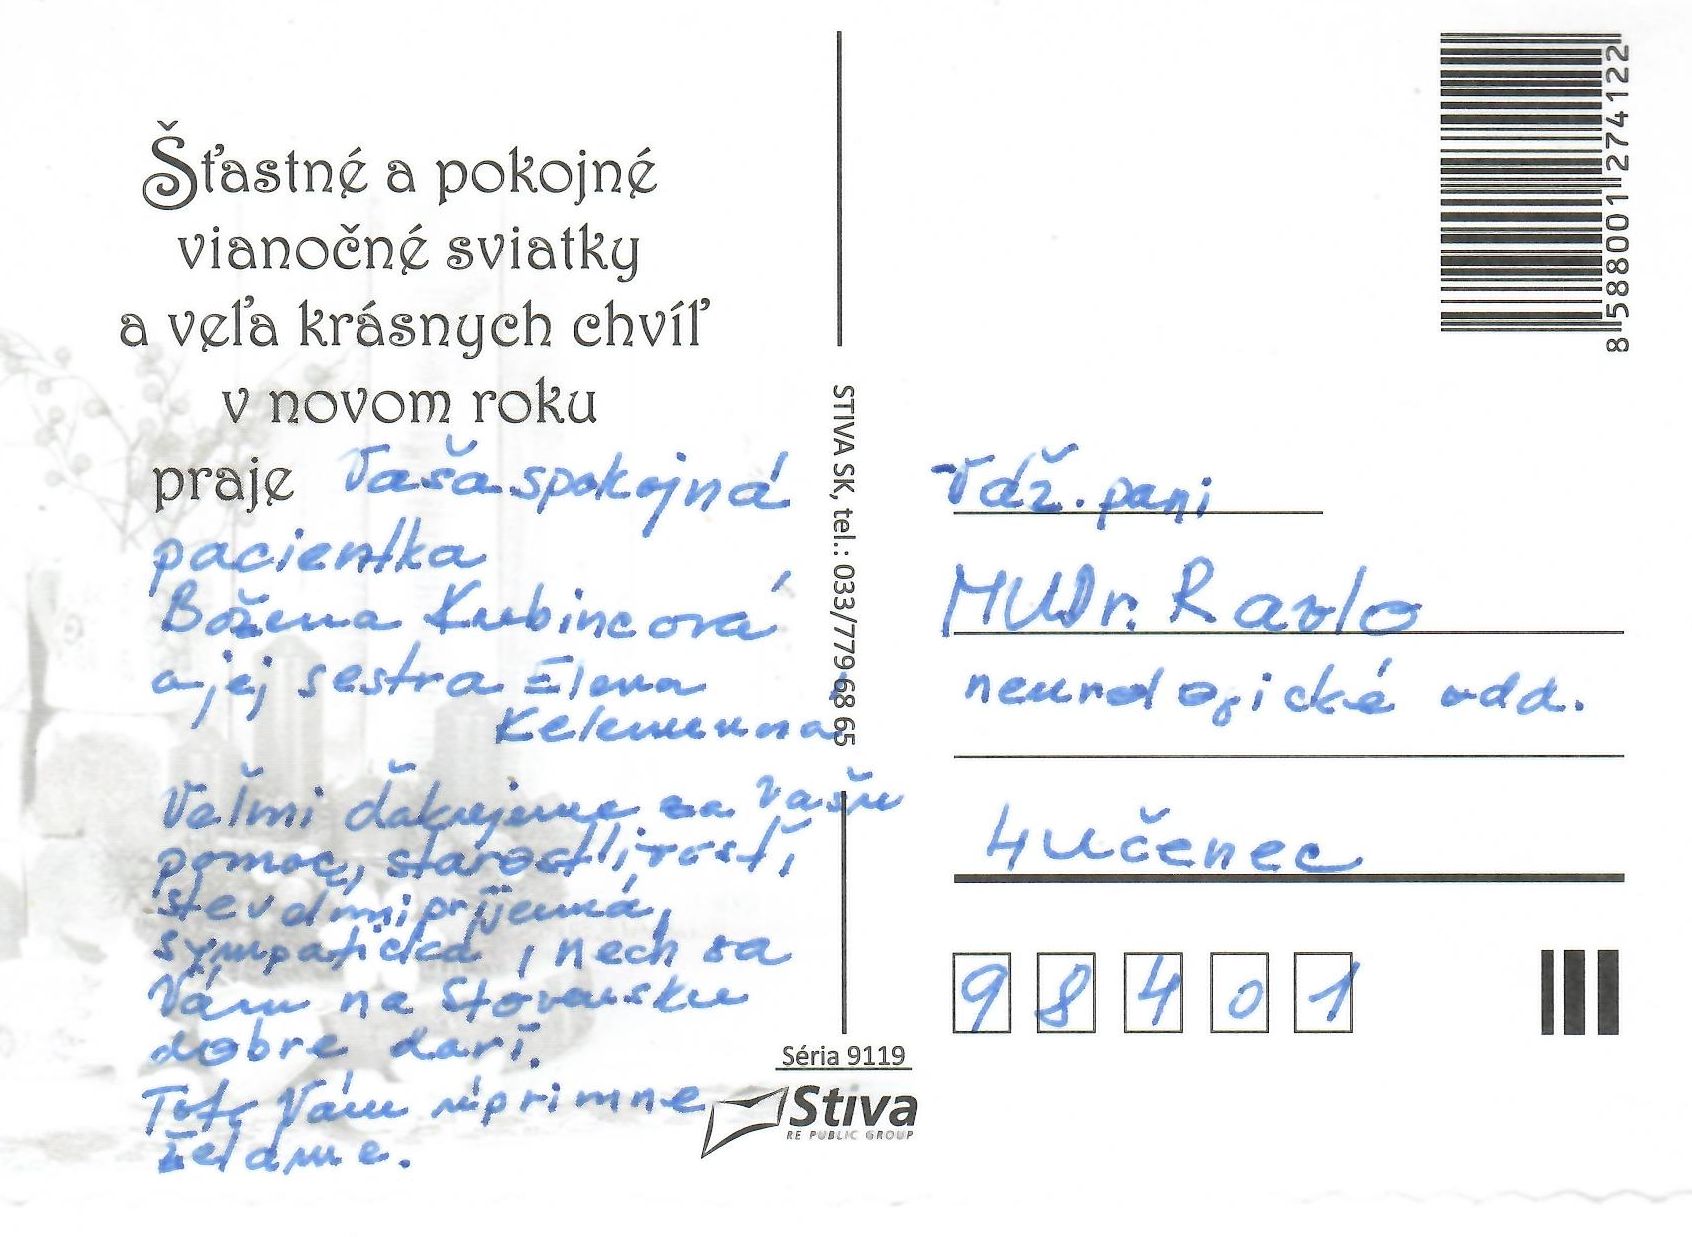 Šťastné a pokojné
vianočné sviatky
a veľa krásnych chvíľ
v novom roku
praje Vaša spokojná
pacientka
Božena Kubincová
a jej sestra Elena
Kelemenna
Veľmi ďakujeme za Vašu
pomoc, starostlivosť,
ste veľmi príjemná,
sympatická, nech sa
Vám na Slovensku
dobre darí.
Toto Vám úprimne
želáme.
STIVA SK, tel.: 033/779 68 65
Séria 9119
Stiva
RE PUBLIC GROUP
8 588001 274122
Váž. pani
MUDr.
neurologické odd.
Lučenec
98401